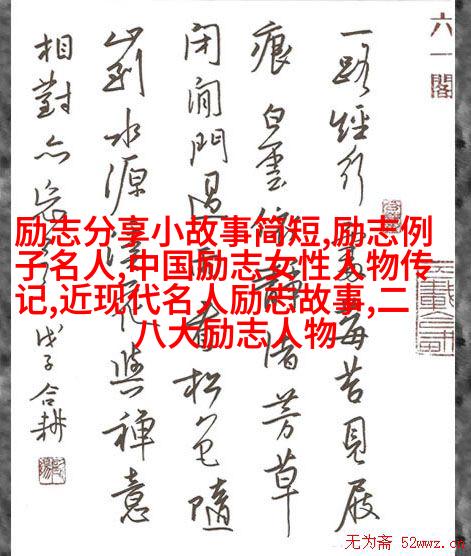 六一閣
一路經行莓苔見屐
痕白雲依静渚芳草
閉閒門過雨看松色隨
山到水源花與禪意
相對亦忘
戊子合耕
励志分享小故事简短,励志例
子名人,中国励志女性人物传
记,近现代名人励志故事,二
八大励志人物
无为斋 52wwz.cn